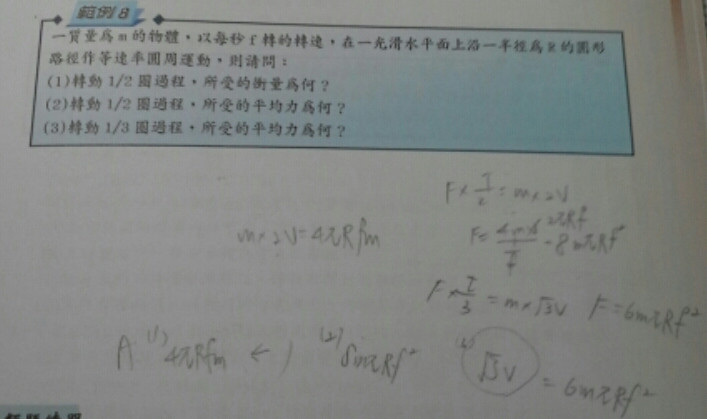 範例 8
一質量為 m 的物體，以每秒 f 轉的轉速，在一光滑水平面上沿一半徑為 R 的圓形
路徑作等速率圓周運動，則請問：
(1)轉動 1/2 圈過程，所受的衝量為何？
(2)轉動 1/2 圈過程，所受的平均力為何？
(3)轉動 1/3 圈過程，所受的平均力為何？
F×T/2=m×2V
m×2V=4πRfm
=8mπRf²
F×T/3=m×√3V F=6mπRf²
A (1) 4πRfm ← (2) 8mπRf² √3V =6mπRf²